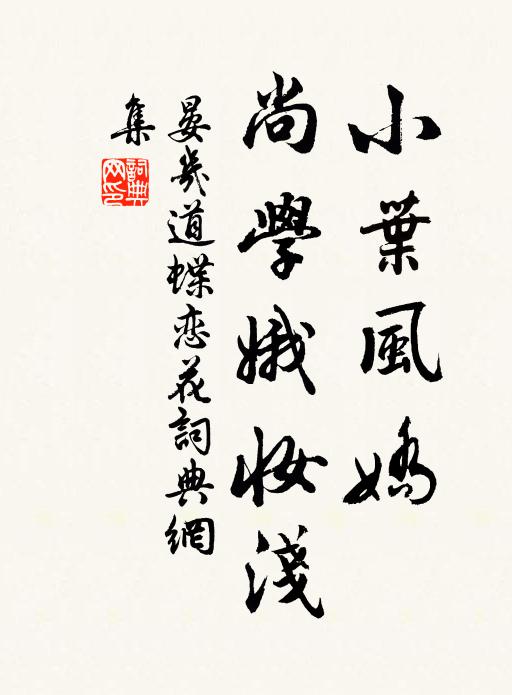 小葉風嬌
尚學娥妝淺
晏幾道蝶恋花詞典網
集
詞典
网印